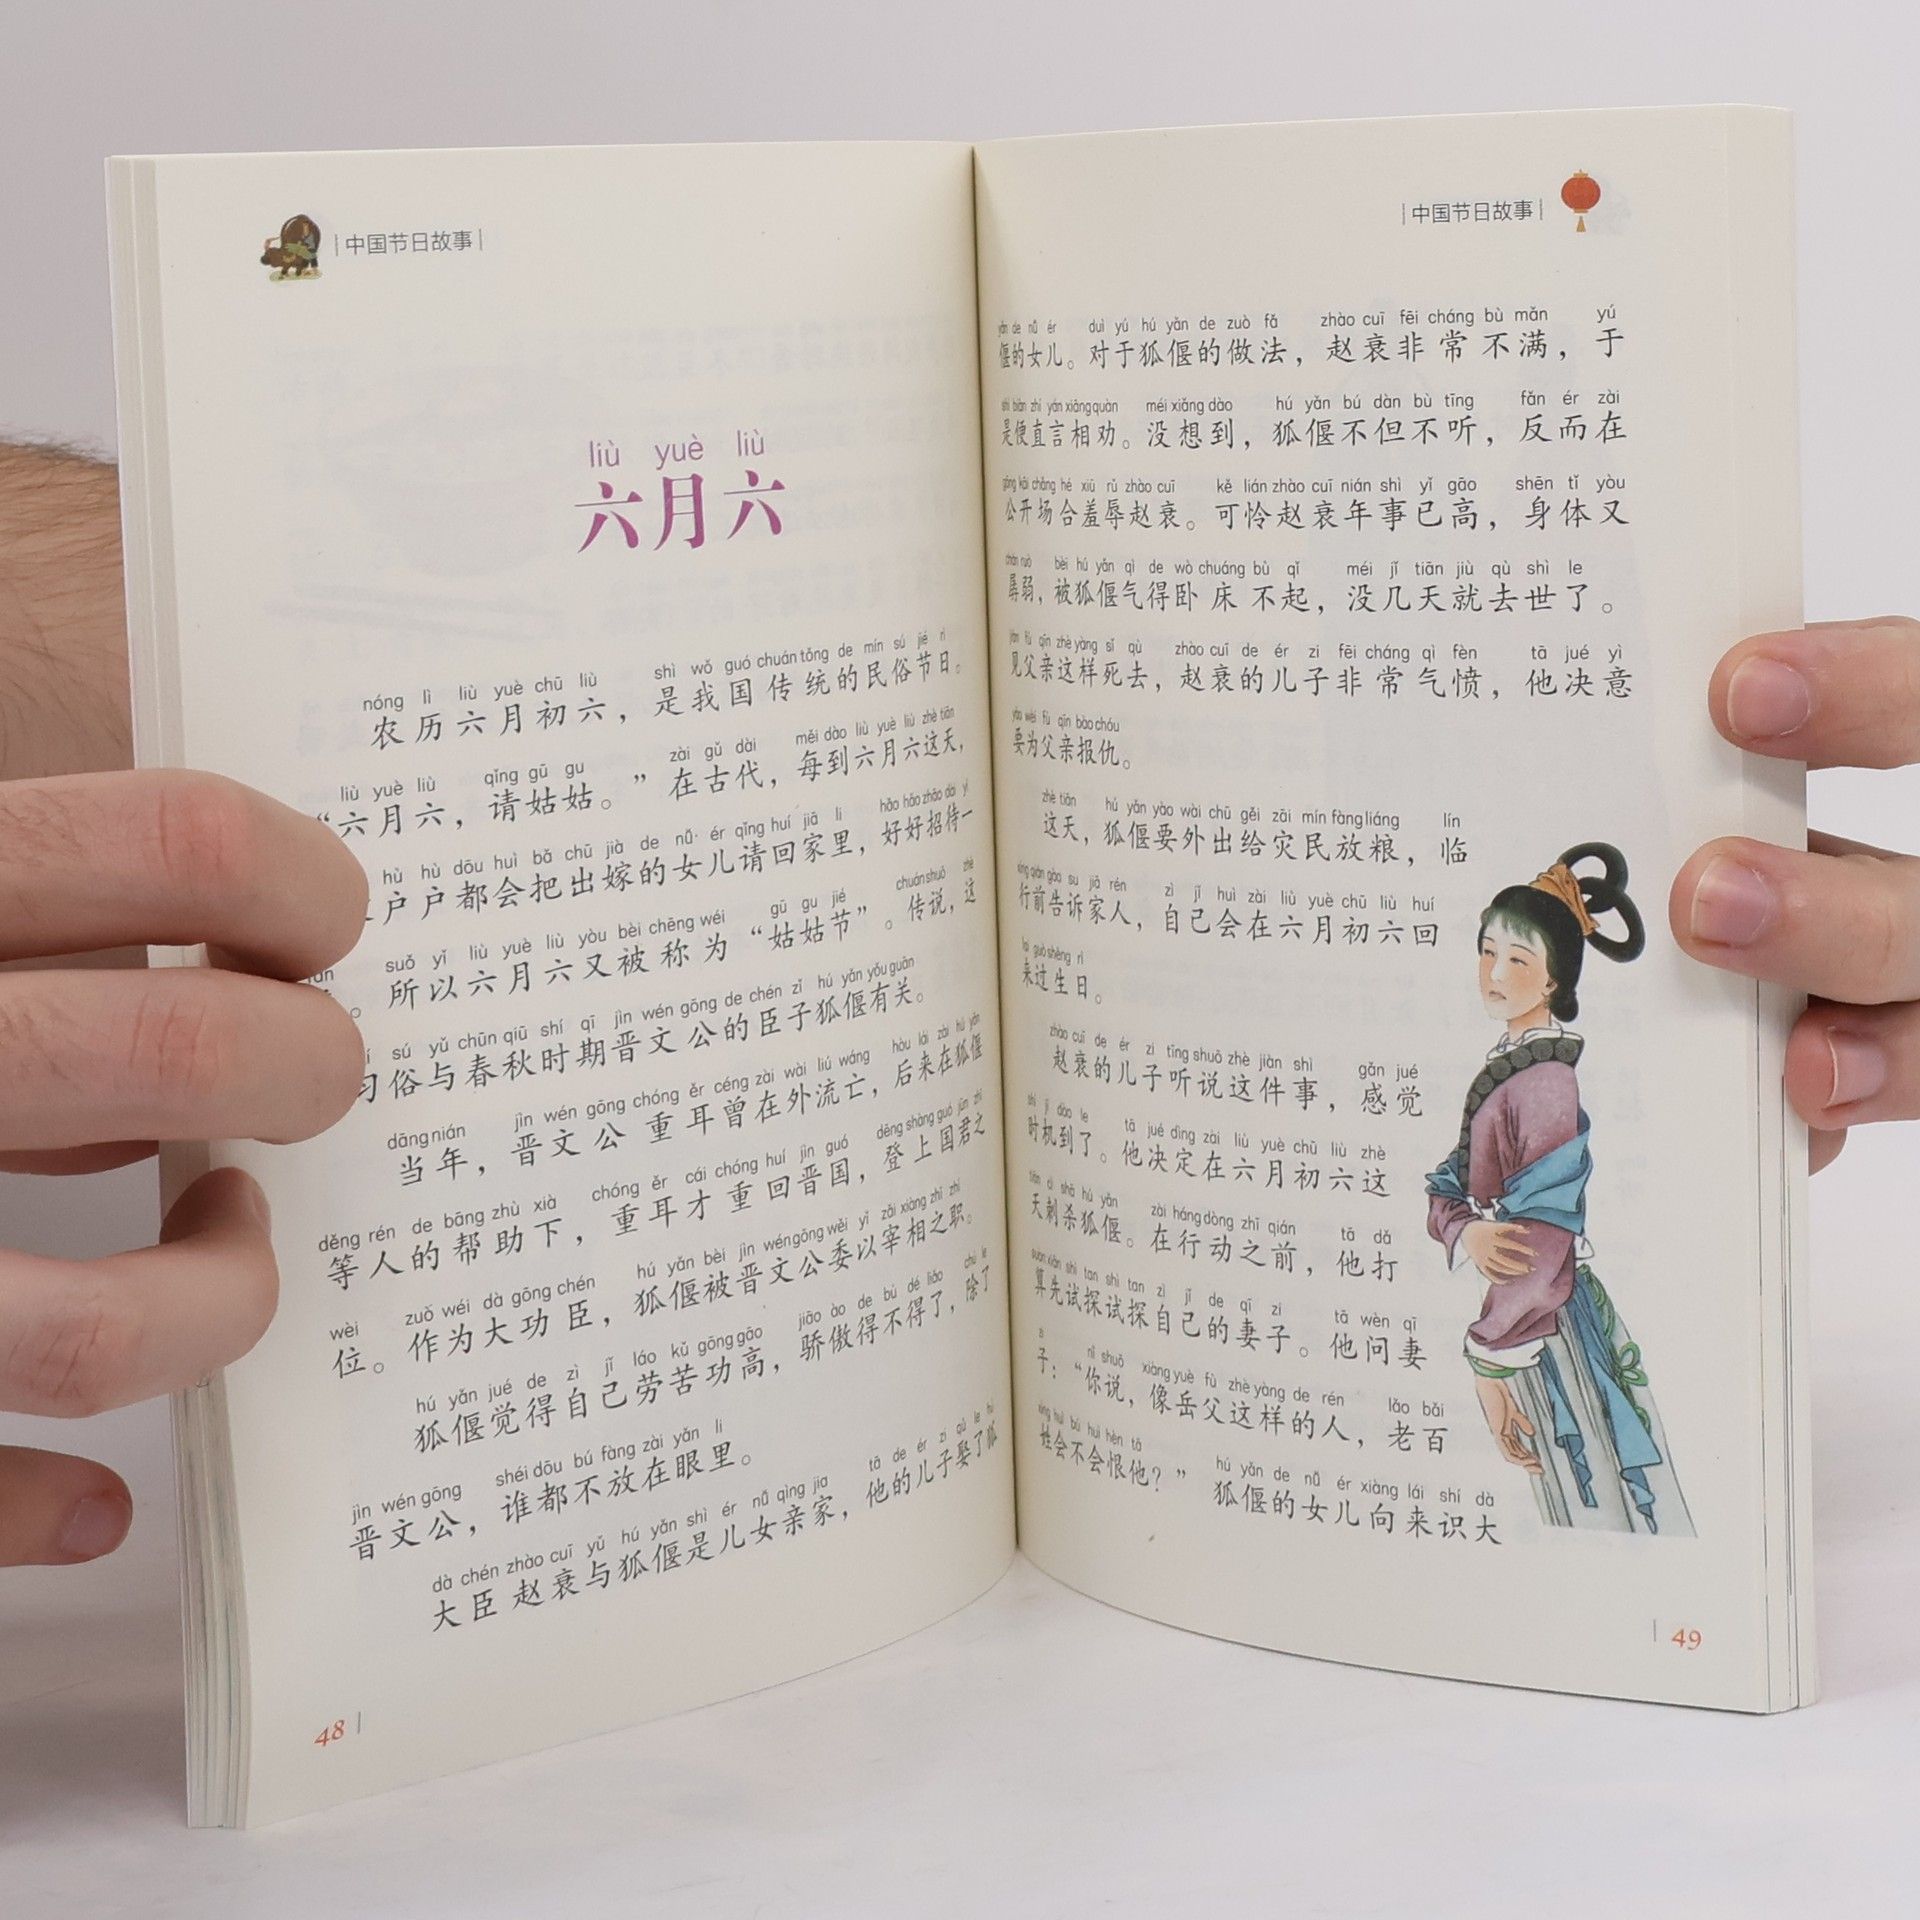 中国节日故事
liù yuè liù
六月六
nóng lì liù yuè chū liù shì wǒ guó chuán tǒng de mín sú jié rì
农历六月初六，是我国传统的民俗节日。
liù yuè liù qǐng gū gu zài gǔ dài měi dào liù yuè liù zhè tiān
“六月六，请姑姑。”在古代，每到六月六这天，
hù hù dōu huì bǎ chū jià de nǚ ér qǐng huí jiā li hǎo hǎo zhāo dài yí
户户都会把出嫁的女儿请回家里，好好招待一
suǒ yǐ liù yuè liù yòu bèi chēng wéi gū gu jié chuán shuō zhè
。所以六月六又被称为“姑姑节”。传说，这
sú yǔ chūn qiū shí qī jìn wén gōng de chén zǐ hú yǎn yǒu guān
习俗与春秋时期晋文公的臣子狐偃有关。
dāng nián jìn wén gōng chóng ěr céng zài wài liú wáng hòu lái zài hú yǎn
当年，晋文公重耳曾在外流亡，后来在狐偃
děng rén de bāng zhù xià chóng ěr cái chóng huí jìn guó dēng shàng guó jūn zhī
等人的帮助下，重耳才重回晋国，登上国君之
wèi zuò wéi dà gōng chén hú yǎn bèi jìn wén gōng wěi yǐ zǎi xiàng zhī zhí
位。作为大功臣，狐偃被晋文公委以宰相之职。
hú yǎn jué de zì jǐ láo kǔ gōng gāo jiāo ào de bù dé liǎo chú le
狐偃觉得自己劳苦功高，骄傲得不得了，除了
jìn wén gōng shéi dōu bú fàng zài yǎn li
晋文公，谁都不放在眼里。
dà chén zhào cuī yǔ hú yǎn shì ér nǚ qìng jia tā de ér zi qǔ le hú
大臣赵衰与狐偃是儿女亲家，他的儿子娶了狐
48
中国节日故事
yǎn de nǚ ér duì yú hú yǎn de zuò fǎ zhào cuī fēi cháng bù mǎn yú
偃的女儿。对于狐偃的做法，赵衰非常不满，于
shì biàn zhí yán xiāng quàn méi xiǎng dào hú yǎn bú dàn bù tīng fǎn ér zài
是便直言相劝。没想到，狐偃不但不听，反而在
gōng kāi chǎng hé xiū rǔ zhào cuī kě lián zhào cuī nián shì yǐ gāo shēn tǐ yòu
公开场合羞辱赵衰。可怜赵衰年事已高，身体又
chán ruò bèi hú yǎn qì de wò chuáng bù qǐ méi jǐ tiān jiù qù shì le
孱弱，被狐偃气得卧床不起，没几天就去世了。
jiàn fù qīn zhè yàng sǐ qù zhào cuī de ér zi fēi cháng qì fèn tā jué yì
见父亲这样死去，赵衰的儿子非常气愤，他决意
yào wèi fù qīn bào chóu
要为父亲报仇。
zhè tiān hú yǎn yào wài chū gěi zāi mín fàng liáng lín
这天，狐偃要外出给灾民放粮，临
xíng qián gào su jiā rén zì jǐ huì zài liù yuè chū liù huí
行前告诉家人，自己会在六月初六回
lai guò shēng rì
来过生日。
zhào cuī de ér zi tīng shuō zhè jiàn shì gǎn jué
赵衰的儿子听说这件事，感觉
shí jī dào le tā jué dìng zài liù yuè chū liù zhè
时机到了。他决定在六月初六这
tiān cì shā hú yǎn zài háng dòng zhī qián tā dǎ
天刺杀狐偃。在行动之前，他打
suàn xiān shì tan shì tan zì jǐ de qī zi tā wèn qī
算先试探试探自己的妻子。他问妻
zi nǐ shuō xiàng yuè fù zhè yàng de rén lǎo bǎi
子：“你说，像岳父这样的人，老百
xìng huì bú huì hèn tā hú yǎn de nǚ ér xiàng lái shí dà
姓会不会恨他？”狐偃的女儿向来识大
49